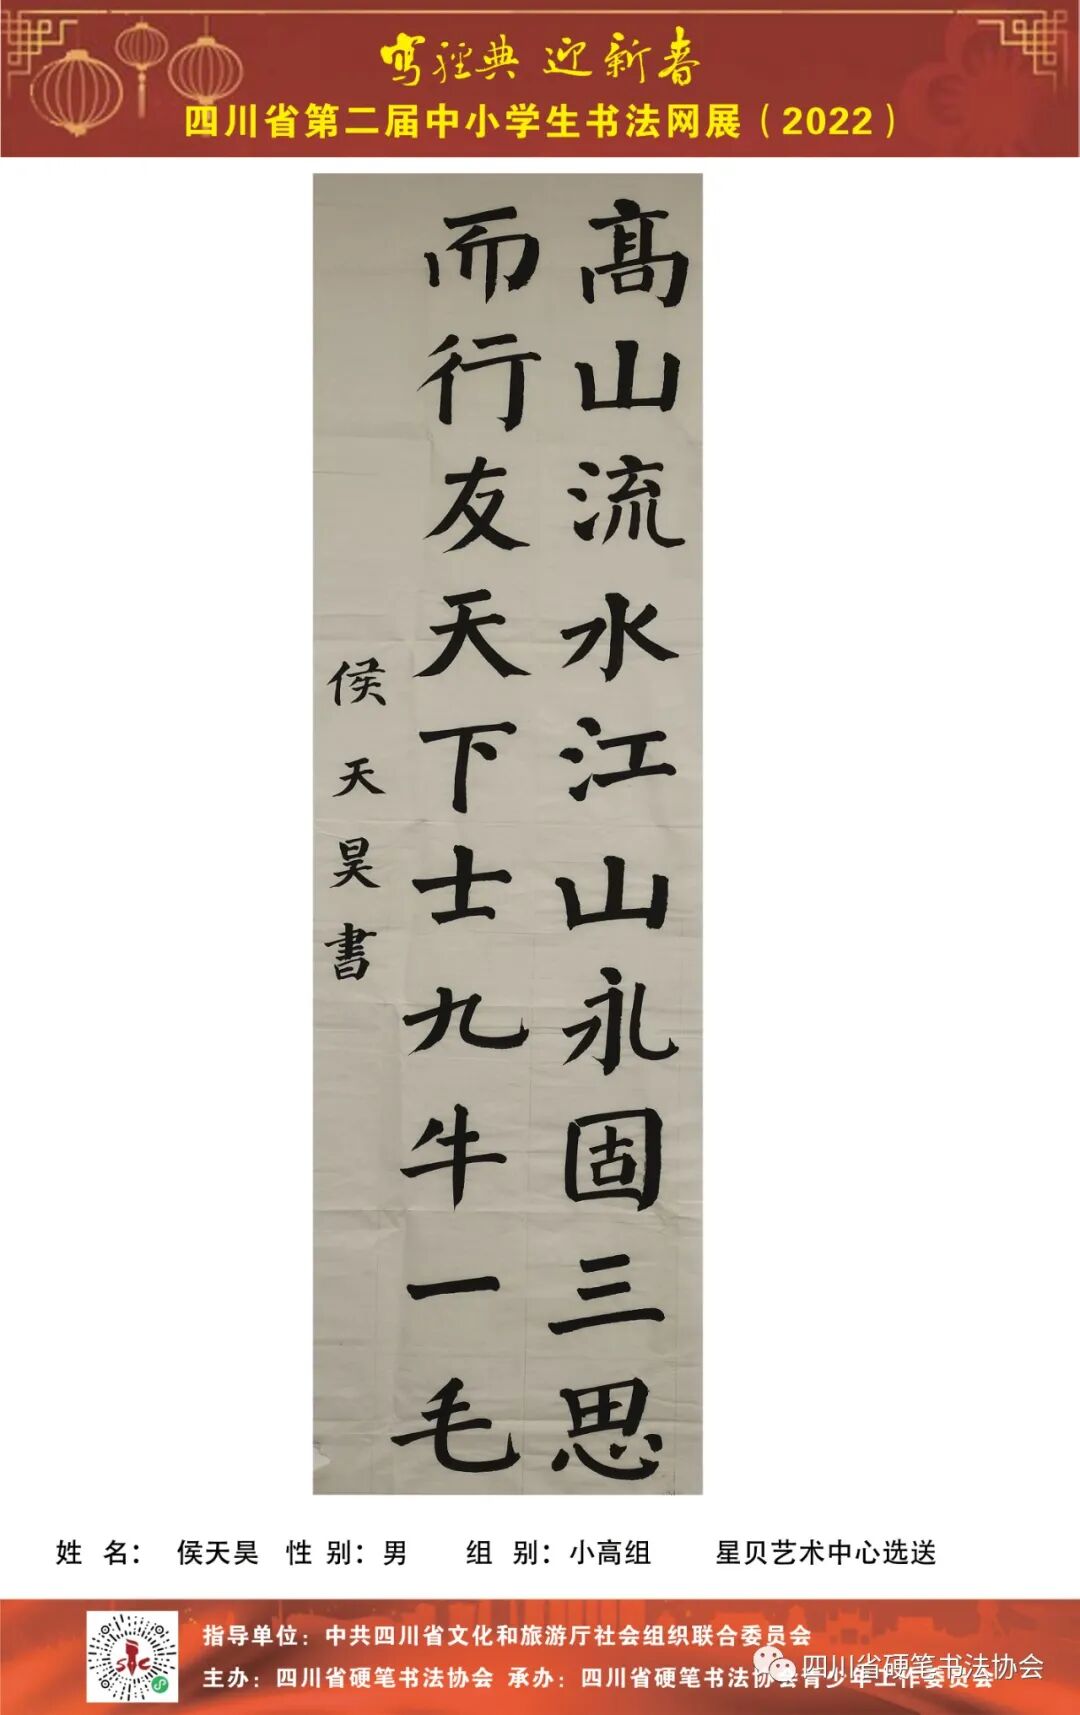 写经典 迎新春
四川省第二届中小学生书法网展（2022）
高山流水江山永固三思
而行友天下士九牛一毛
侯天昊書
姓 名： 侯天昊 性 别：男 组 别：小高组 星贝艺术中心选送
指导单位：中共四川省文化和旅游厅社会组织联合委员会
主办：四川省硬笔书法协会 承办：四川省硬笔书法协会青少年工作委员会
四川省硬笔书法协会